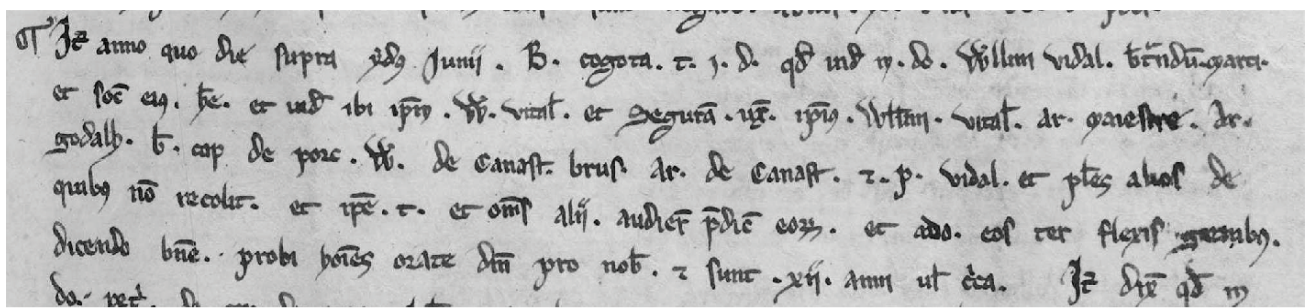 ¶ It̃ anno quo die supra ydꝰ Junii . B . cogota . t . j . d . qd̃ uid̃ in . do . Willmi vidal . b̃tñdũ . marti .
et soc̃ eiꝰ . he . et uid̃ ibi ip̃m . W . vital̃ . et Segurã . ux̃ . ip̃iꝰ . Willmi . vital̃ . ar . maiestre . Ar .
godalh . b . cap de porc . W . de Canast . brus . Ar . de Canast . ⁊ . p . vidal . et pl̃es alios de
quibꝰ nõ recolit . et ip̃e . t . et om̃s alii . audier̃ p̃dic̃ eoꝝ . et ado . eos ter flexis genibꝰ .
dicendo bñe . probi hoĩes orate dñm pro nob̃ . ⁊ sunt . xii . anni ul̃ c̃ca . It̃ dix̃ qd̃ in